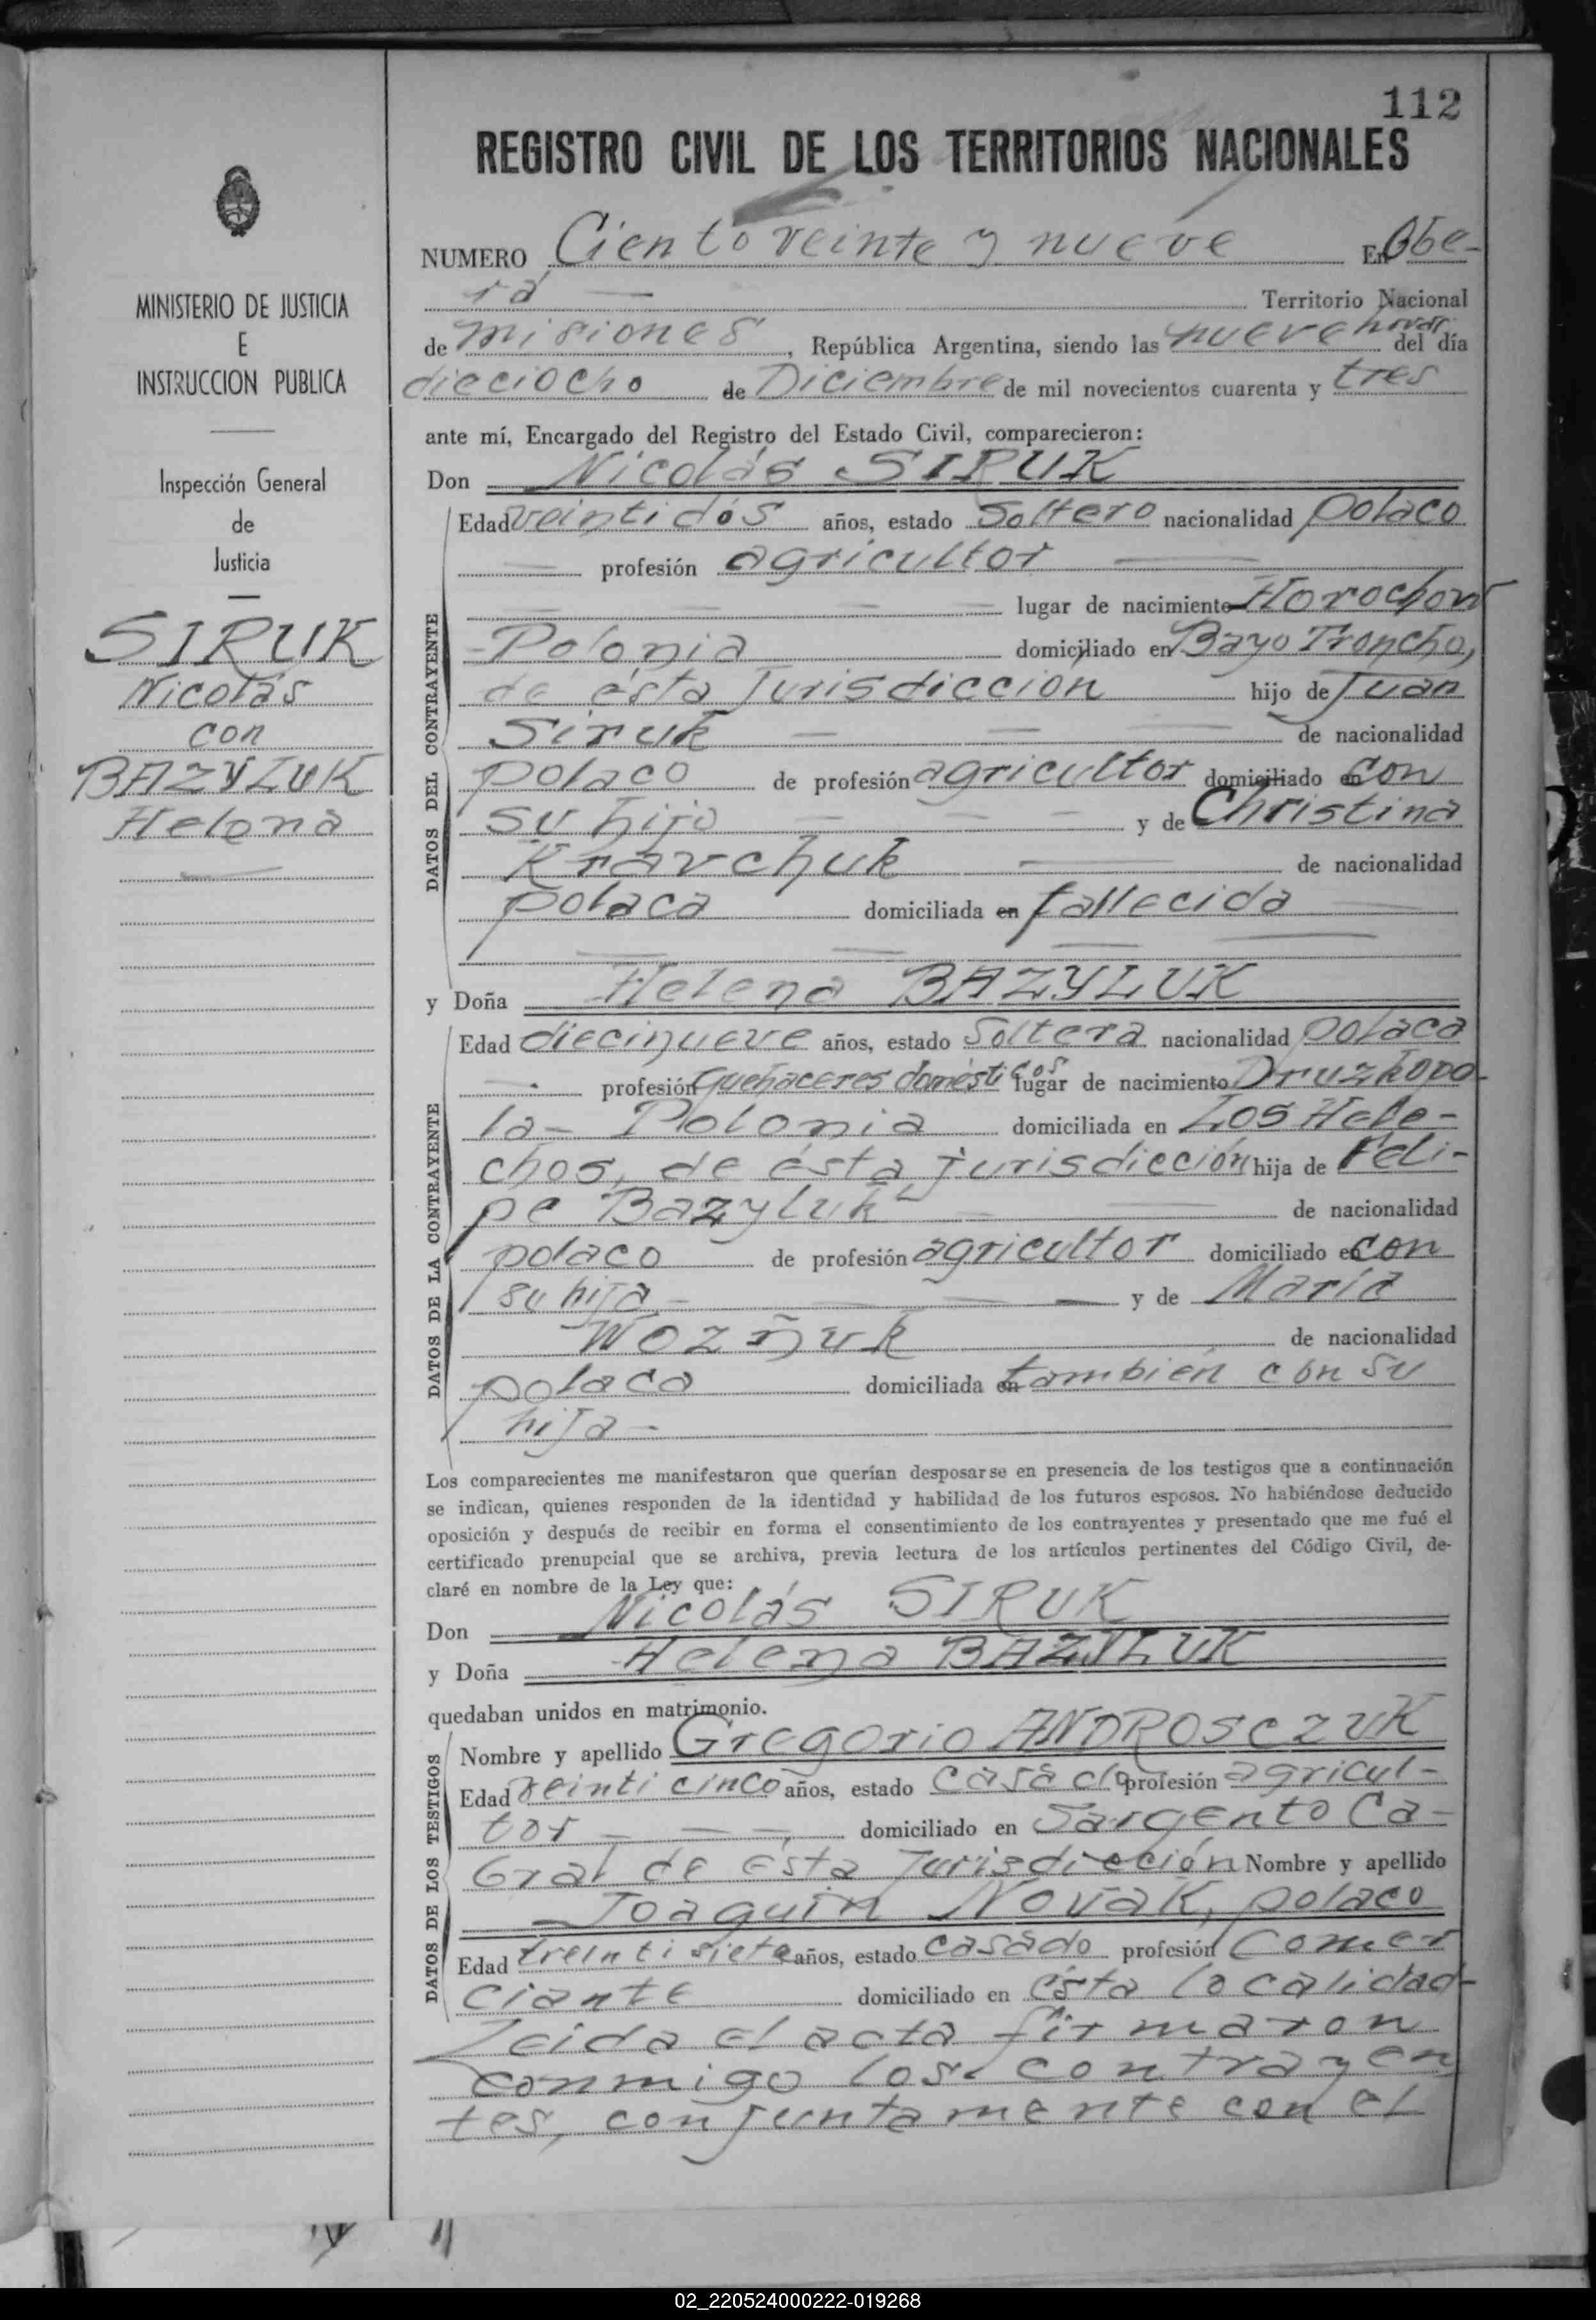 112
REGISTRO CIVIL DE LOS TERRITORIOS NACIONALES
NUMERO Ciento veinte y nueve En Obe-
rá — Territorio Nacional
de misiones, República Argentina, siendo las nueve horas del día
dieciocho de Diciembre de mil novecientos cuarenta y tres
ante mí, Encargado del Registro del Estado Civil, comparecieron:
Don Nicolás SIRUK
Edad veintidós años, estado Soltero nacionalidad polaco
— profesión agricultor —
— — — — — lugar de nacimiento Horochow
-Polonia domiciliado en Bayo Troncho,
de ésta Jurisdiccion hijo de Juan
Siruk — — — de nacionalidad
polaco de profesión agricultor domiciliado en con
su hijo — — — y de Christina
Kravchuk — de nacionalidad
polaca domiciliada en fallecida —
— — —
y Doña Helena BAZYLUK
Edad diecinueve años, estado Soltera nacionalidad polaca
— profesión quehaceres domésticos lugar de nacimiento Druzkopo-
la- Polonia domiciliada en Los Hele-
chos, de ésta jurisdicción hija de Feli-
pe Bazyluk — — de nacionalidad
polaco de profesión agricultor domiciliado en con
su hija.- — — — y de María
Wozñuk de nacionalidad
polaca domiciliada en también con su
hija —
Los comparecientes me manifestaron que querían desposarse en presencia de los testigos que a continuación
se indican, quienes responden de la identidad y habilidad de los futuros esposos. No habiéndose deducido
oposición y después de recibir en forma el consentimiento de los contrayentes y presentado que me fué el
certificado prenupcial que se archiva, previa lectura de los artículos pertinentes del Código Civil, de-
claré en nombre de la Ley que:
Don Nicolás SIRUK
y Doña Helena BAZYLUK
quedaban unidos en matrimonio.
Nombre y apellido Gregorio ANDROSCZUK
Edad veinticinco años, estado casado profesión agricul-
tor — — —, domiciliado en Sargento Ca-
bral de ésta Jurisdicción Nombre y apellido
Joaquin Novak, polaco
Edad treintisiete años, estado casado profesión Comer
ciante domiciliado en ésta localidad-
Leida el acta firmaron
conmigo los contrayen
tes, conjuntamente con el
DATOS DEL CONTRAYENTE
DATOS DE LA CONTRAYENTE
DATOS DE LOS TESTIGOS
MINISTERIO DE JUSTICIA
E
INSTRUCCION PUBLICA
Inspección General
de
Justicia
SIRUK
Nicolás
con
BAZYLUK
Helena
02_220524000222-019268